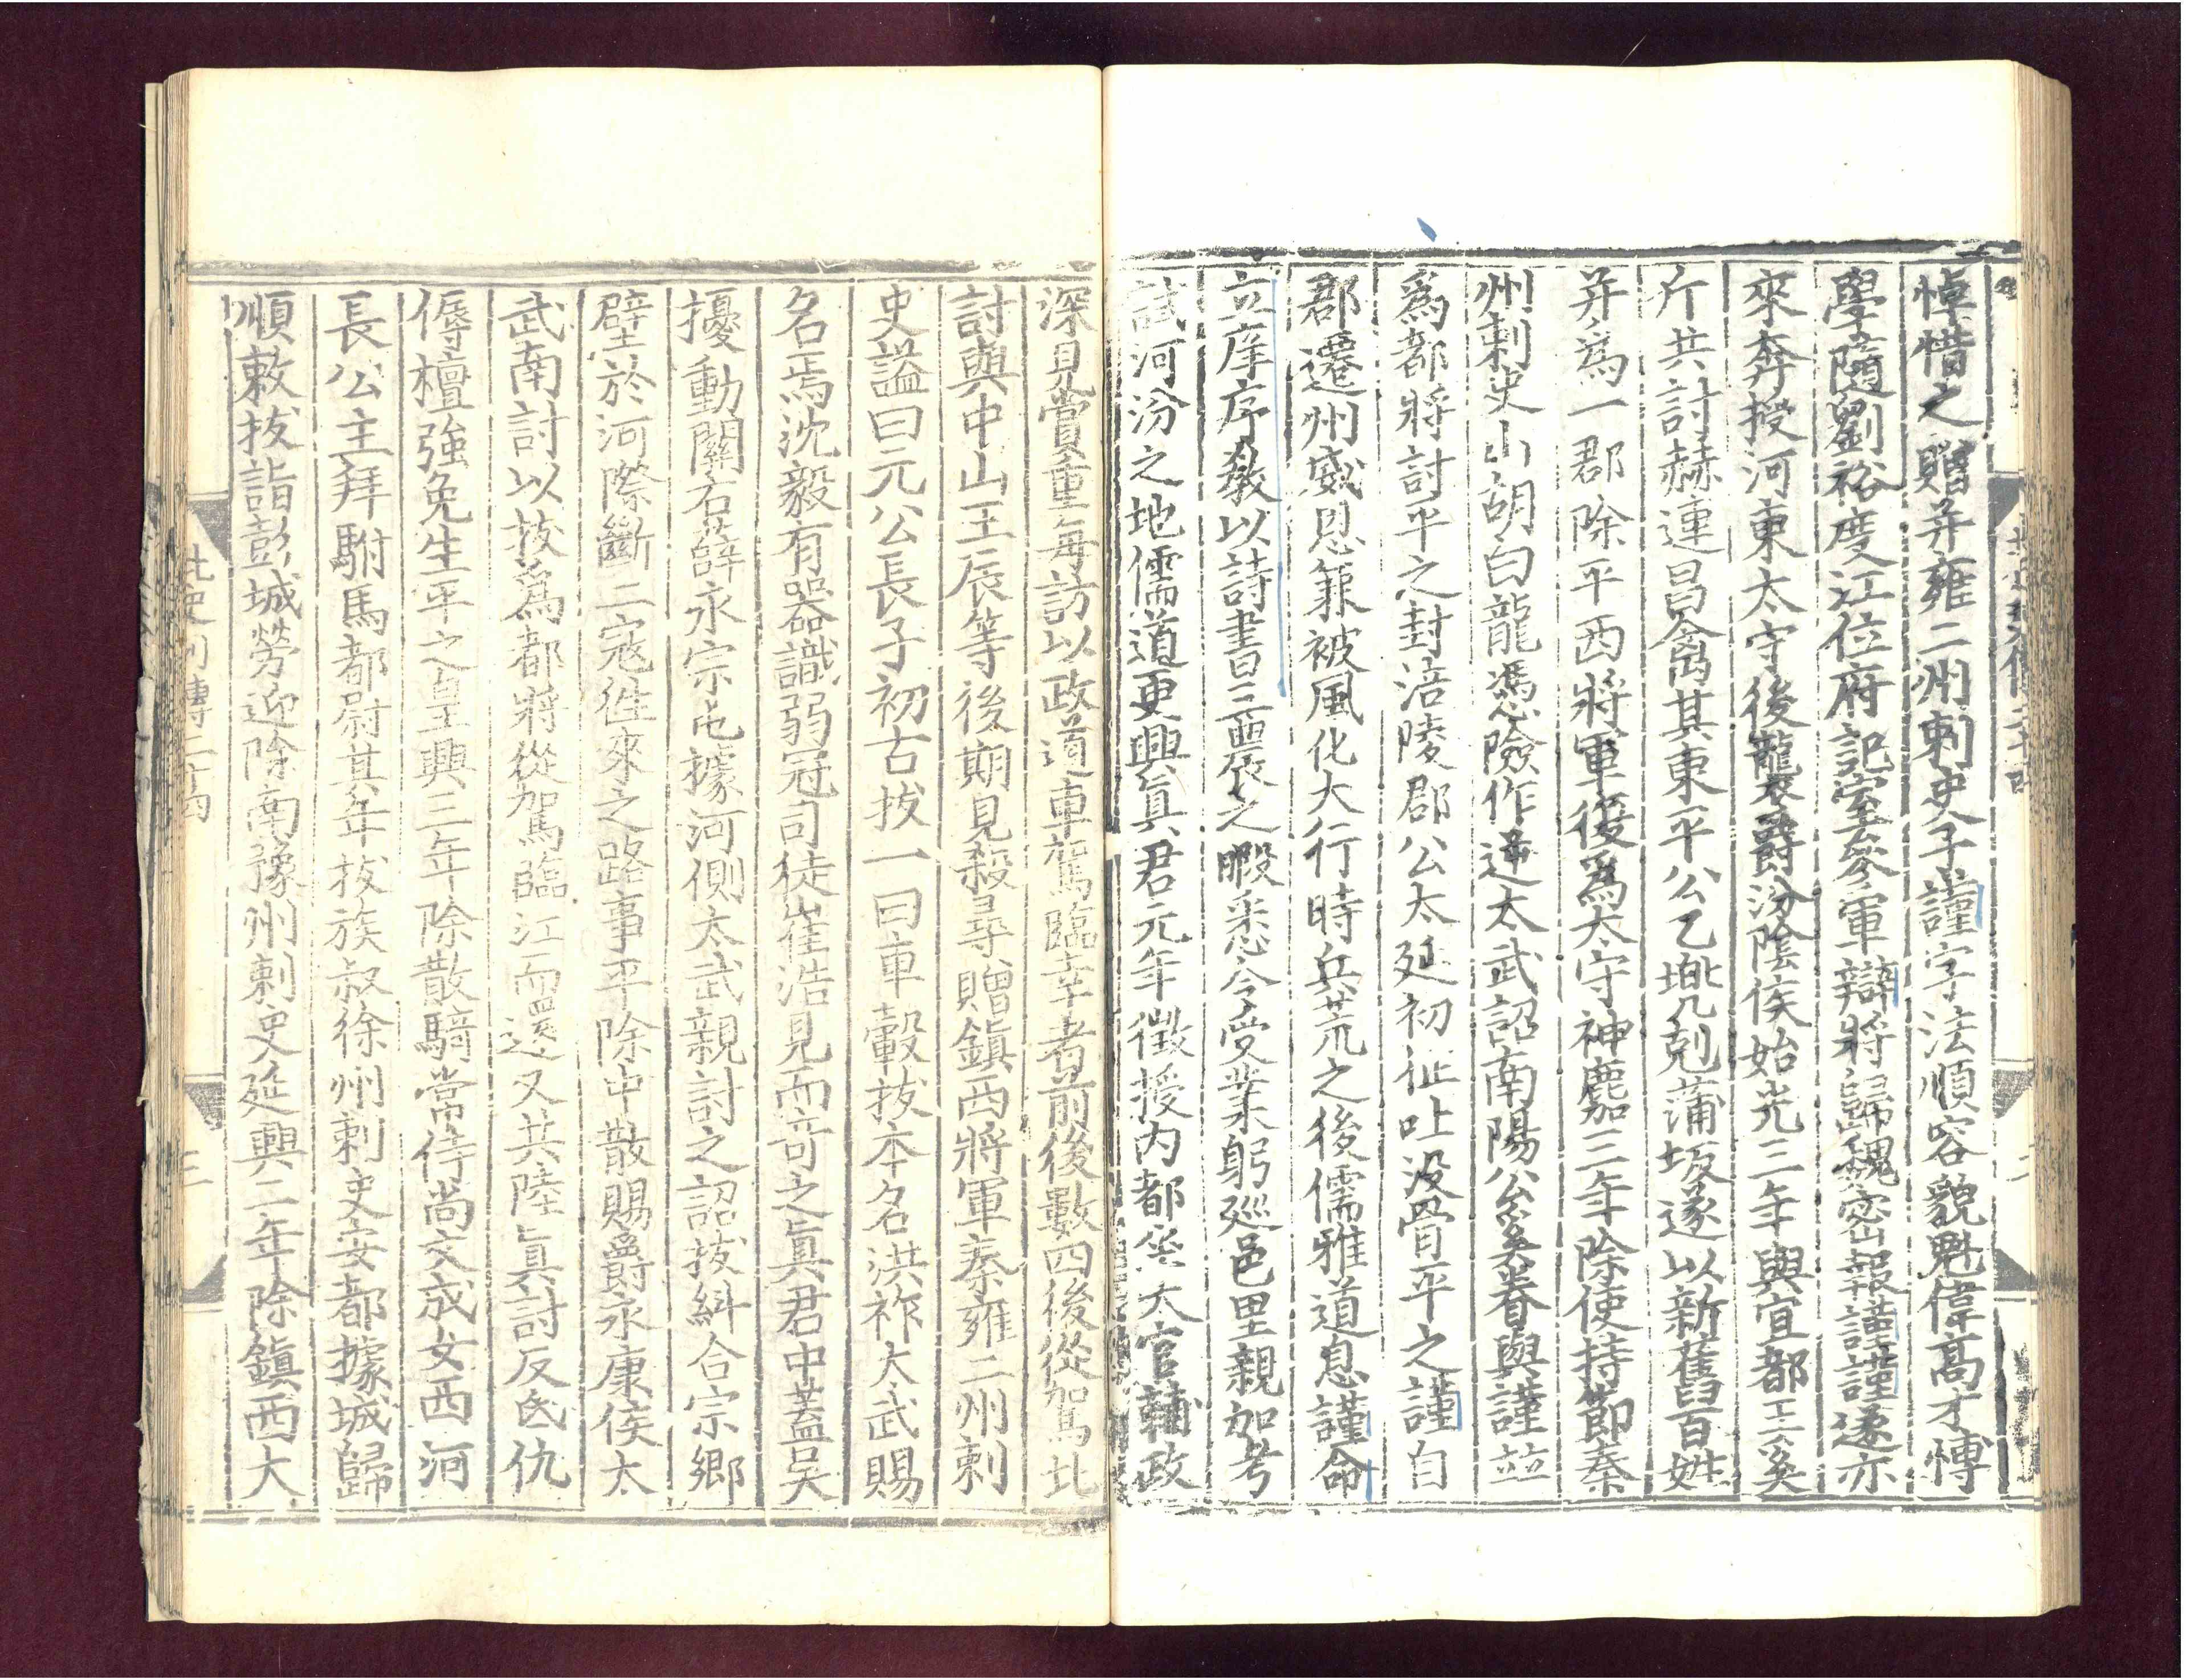 悼惜之贈并雍二州刺史子謹字法順容貌魁偉高才博
學隨劉裕度江位府記室參軍辯將歸魏密報謹謹遂亦
來奔授河東太守後襲爵汾陰侯始光三年與宜都王奚
斤共討赫連昌禽其東平公乙兠剋蒲坂遂以新舊百姓
并爲一郡除平西將軍復爲太守神䴥三年除使持節秦
州刺史山胡白龍馮險作逆太武詔南陽公奚眷與謹並
爲都將討平之封涪陵郡公太延初征吐沒骨平之謹自
郡遷州威恩兼被風化大行時兵荒之後儒雅道息謹命
立庠序教以詩書三農之暇悉令受業躬巡邑里親加考
試河汾之地儒道更興眞君元年徵授內都坐大官輔政
深見賞重每訪以政道車駕臨幸者前後數四後從駕北
討與中山王辰等後期見殺尋贈鎮西將軍秦雍二州刺
史謚曰元公長子初古拔一曰車轂拔本名洪祚太武賜
名焉沈毅有器識弱冠司徒崔浩見而竒之眞君中蓋吳
擾動關右薛永宗屯據河側太武親討之詔拔糾合宗鄉
壁於河際斷二寇徃來之路事平除中散賜爵永康侯太
武南討以拔爲都將從駕臨江而還又共陸眞討反氐仇
傉檀強免生平之皇興三年除散騎常侍尚文成女西河
長公主拜駙馬都尉其年拔族叔徐州刺史安都據城歸
順敕拔詣彭城勞迎除南豫州刺史延興二年除鎮西大
北史列傳二十四
三